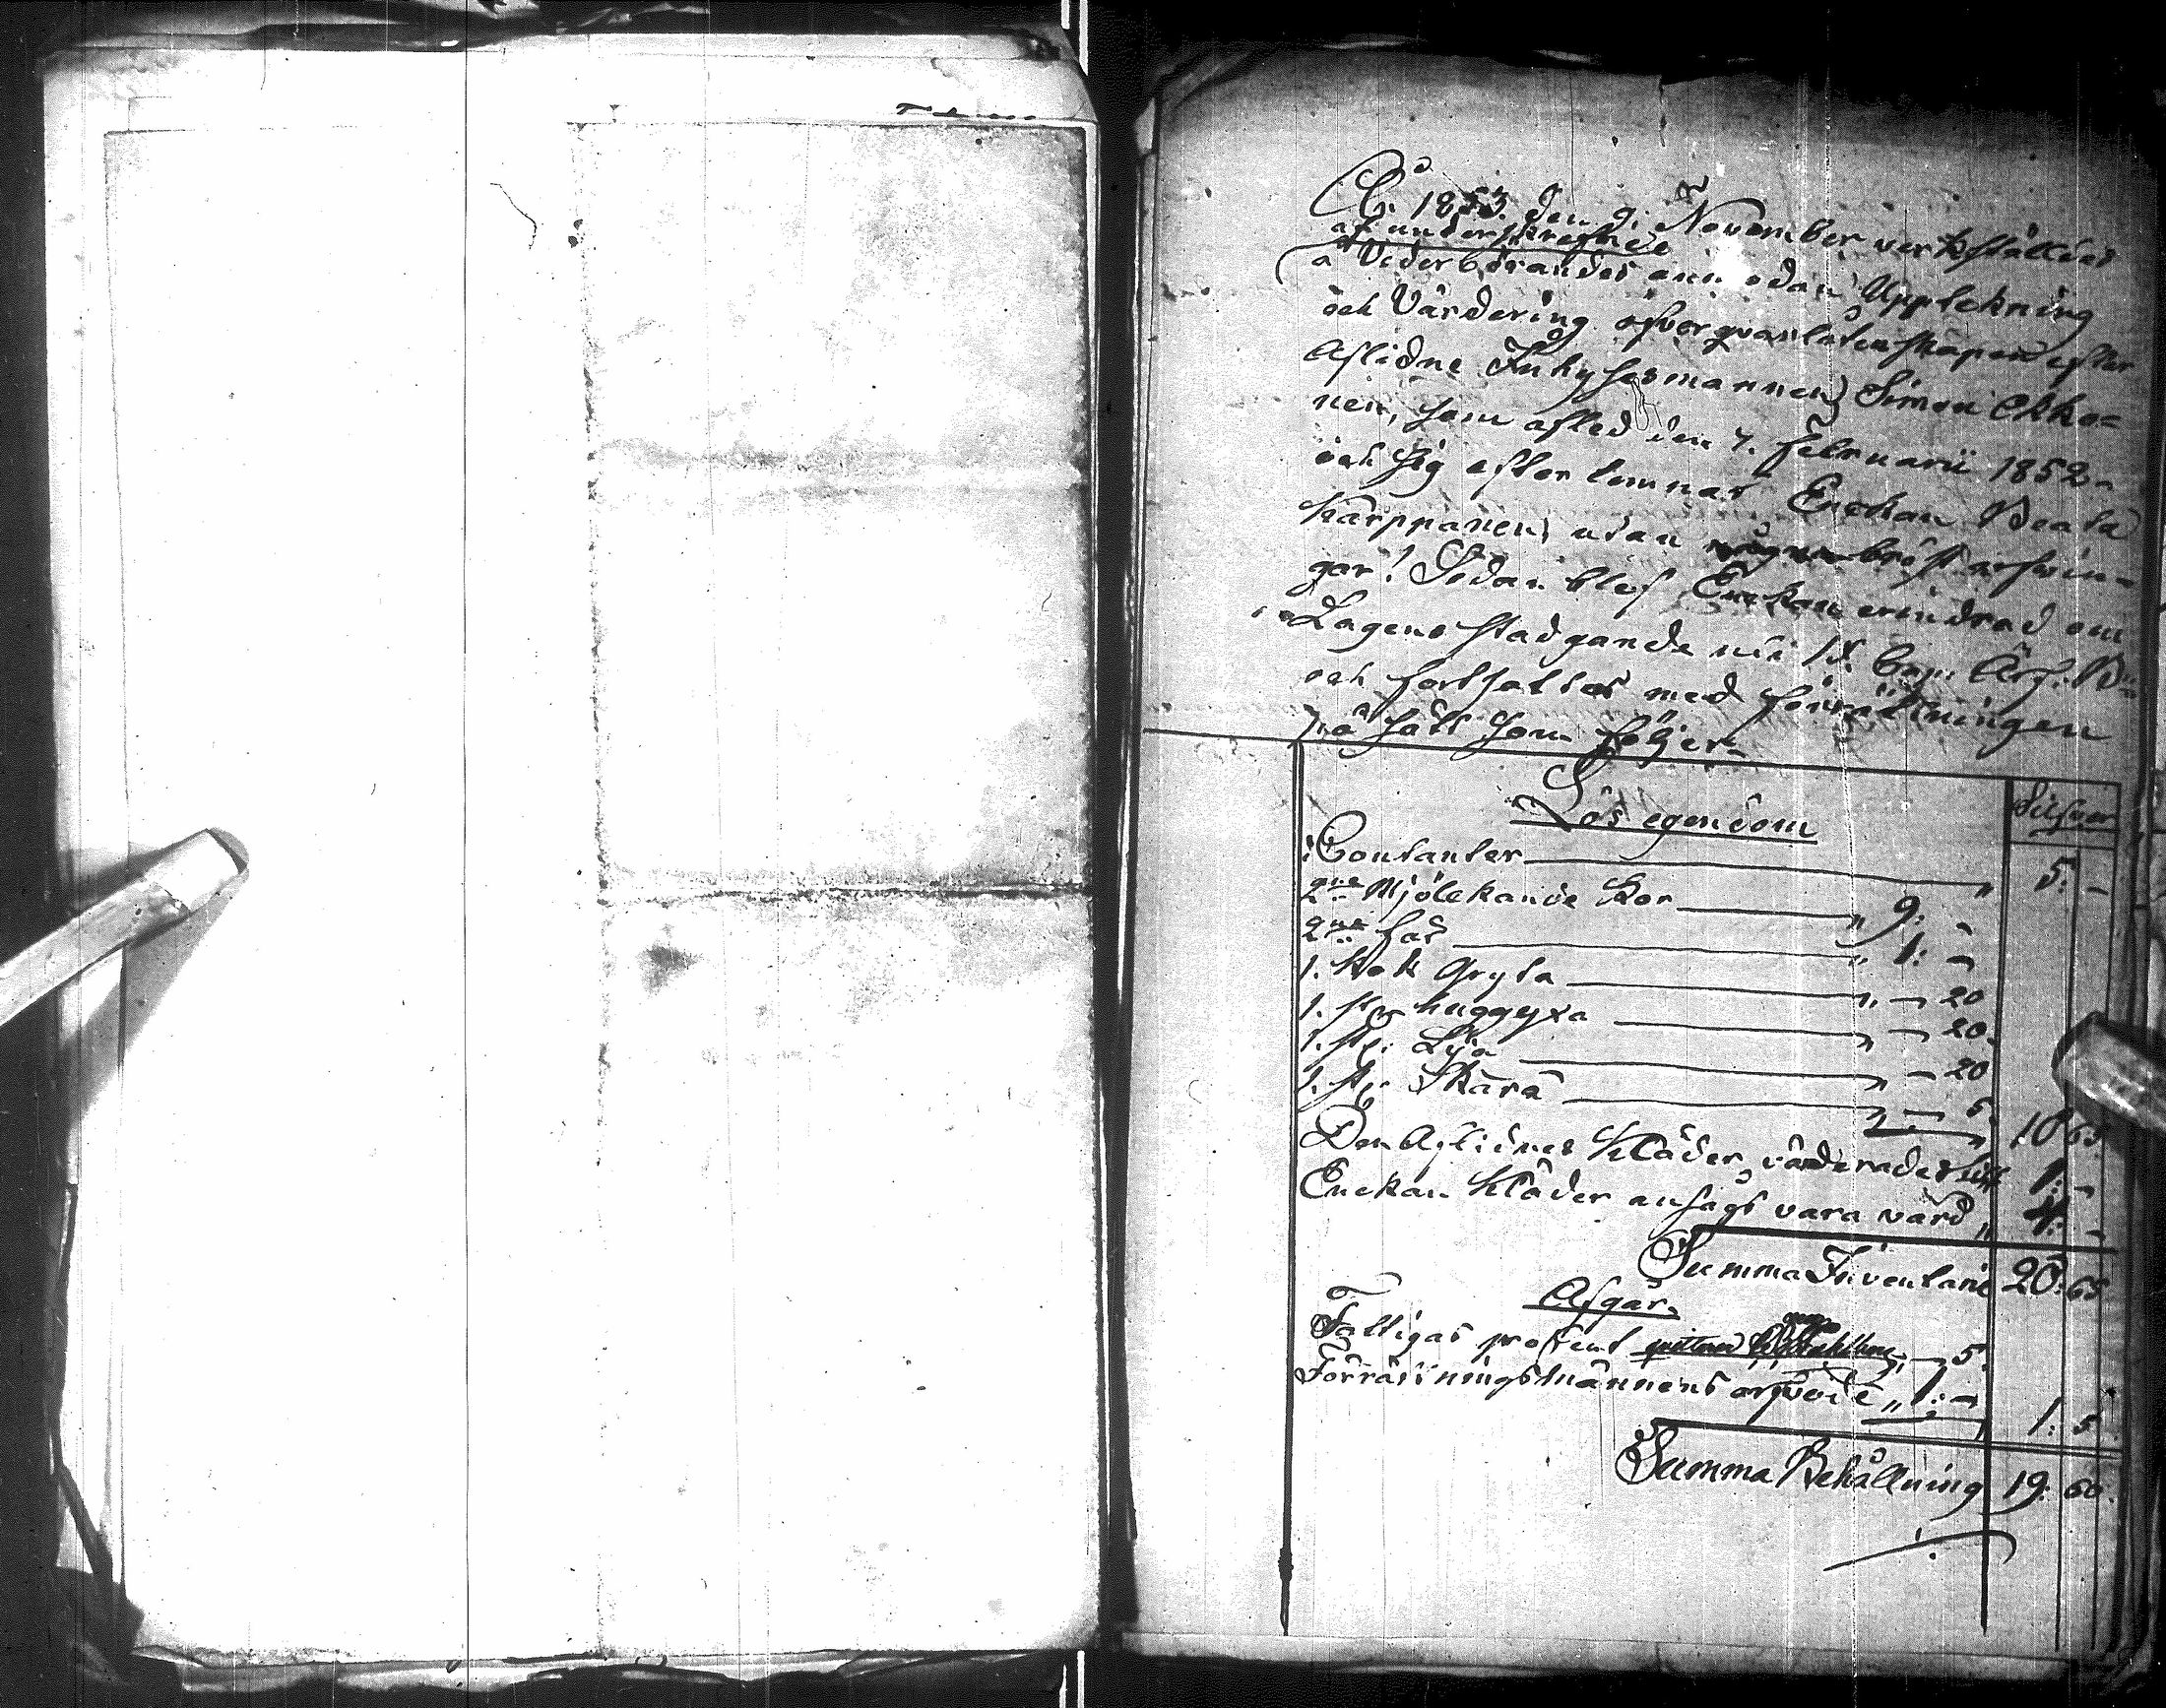 År 1853 den 9. November verkställdes
af underskrefne
å Vederbörandes anmodan Uppteckning
och Värdering öfver qvarlåtenskapen efter
Aflidne Inhysesmannen Simon Akko=
nen, som afled den 7. Februarii 1852 –
och sig efterlemnar Enekan Beata
Karppanen, utan några bröst arfvin=
gar! Sedan blef Enekan erindrad om
Lagens stadgande uti IX. Cap. Ärf. B:
och fortsattes med förrättningen
på sätt som följer –
Silfver
Lös egendom
Contanter " 5: –
2ne Mjölckande Kor " 9: –
2ne får " 1: –
1. Kok Gryta " – 20
1. st. huggyxa " – 20.
1. st. Lja " – 20
1. st. Skära " – 5. 10 65.
Den Aflidnes Kläder värderades till 1: –
Enekan Kläder ansågs vara värd " 4: –
Summa Inventarie 20: 65
Afgår.
Fattigas procent – 5.
Förrättningsmännens arfvode " 1: – 1: 5
Summa Behållning 19: 60.